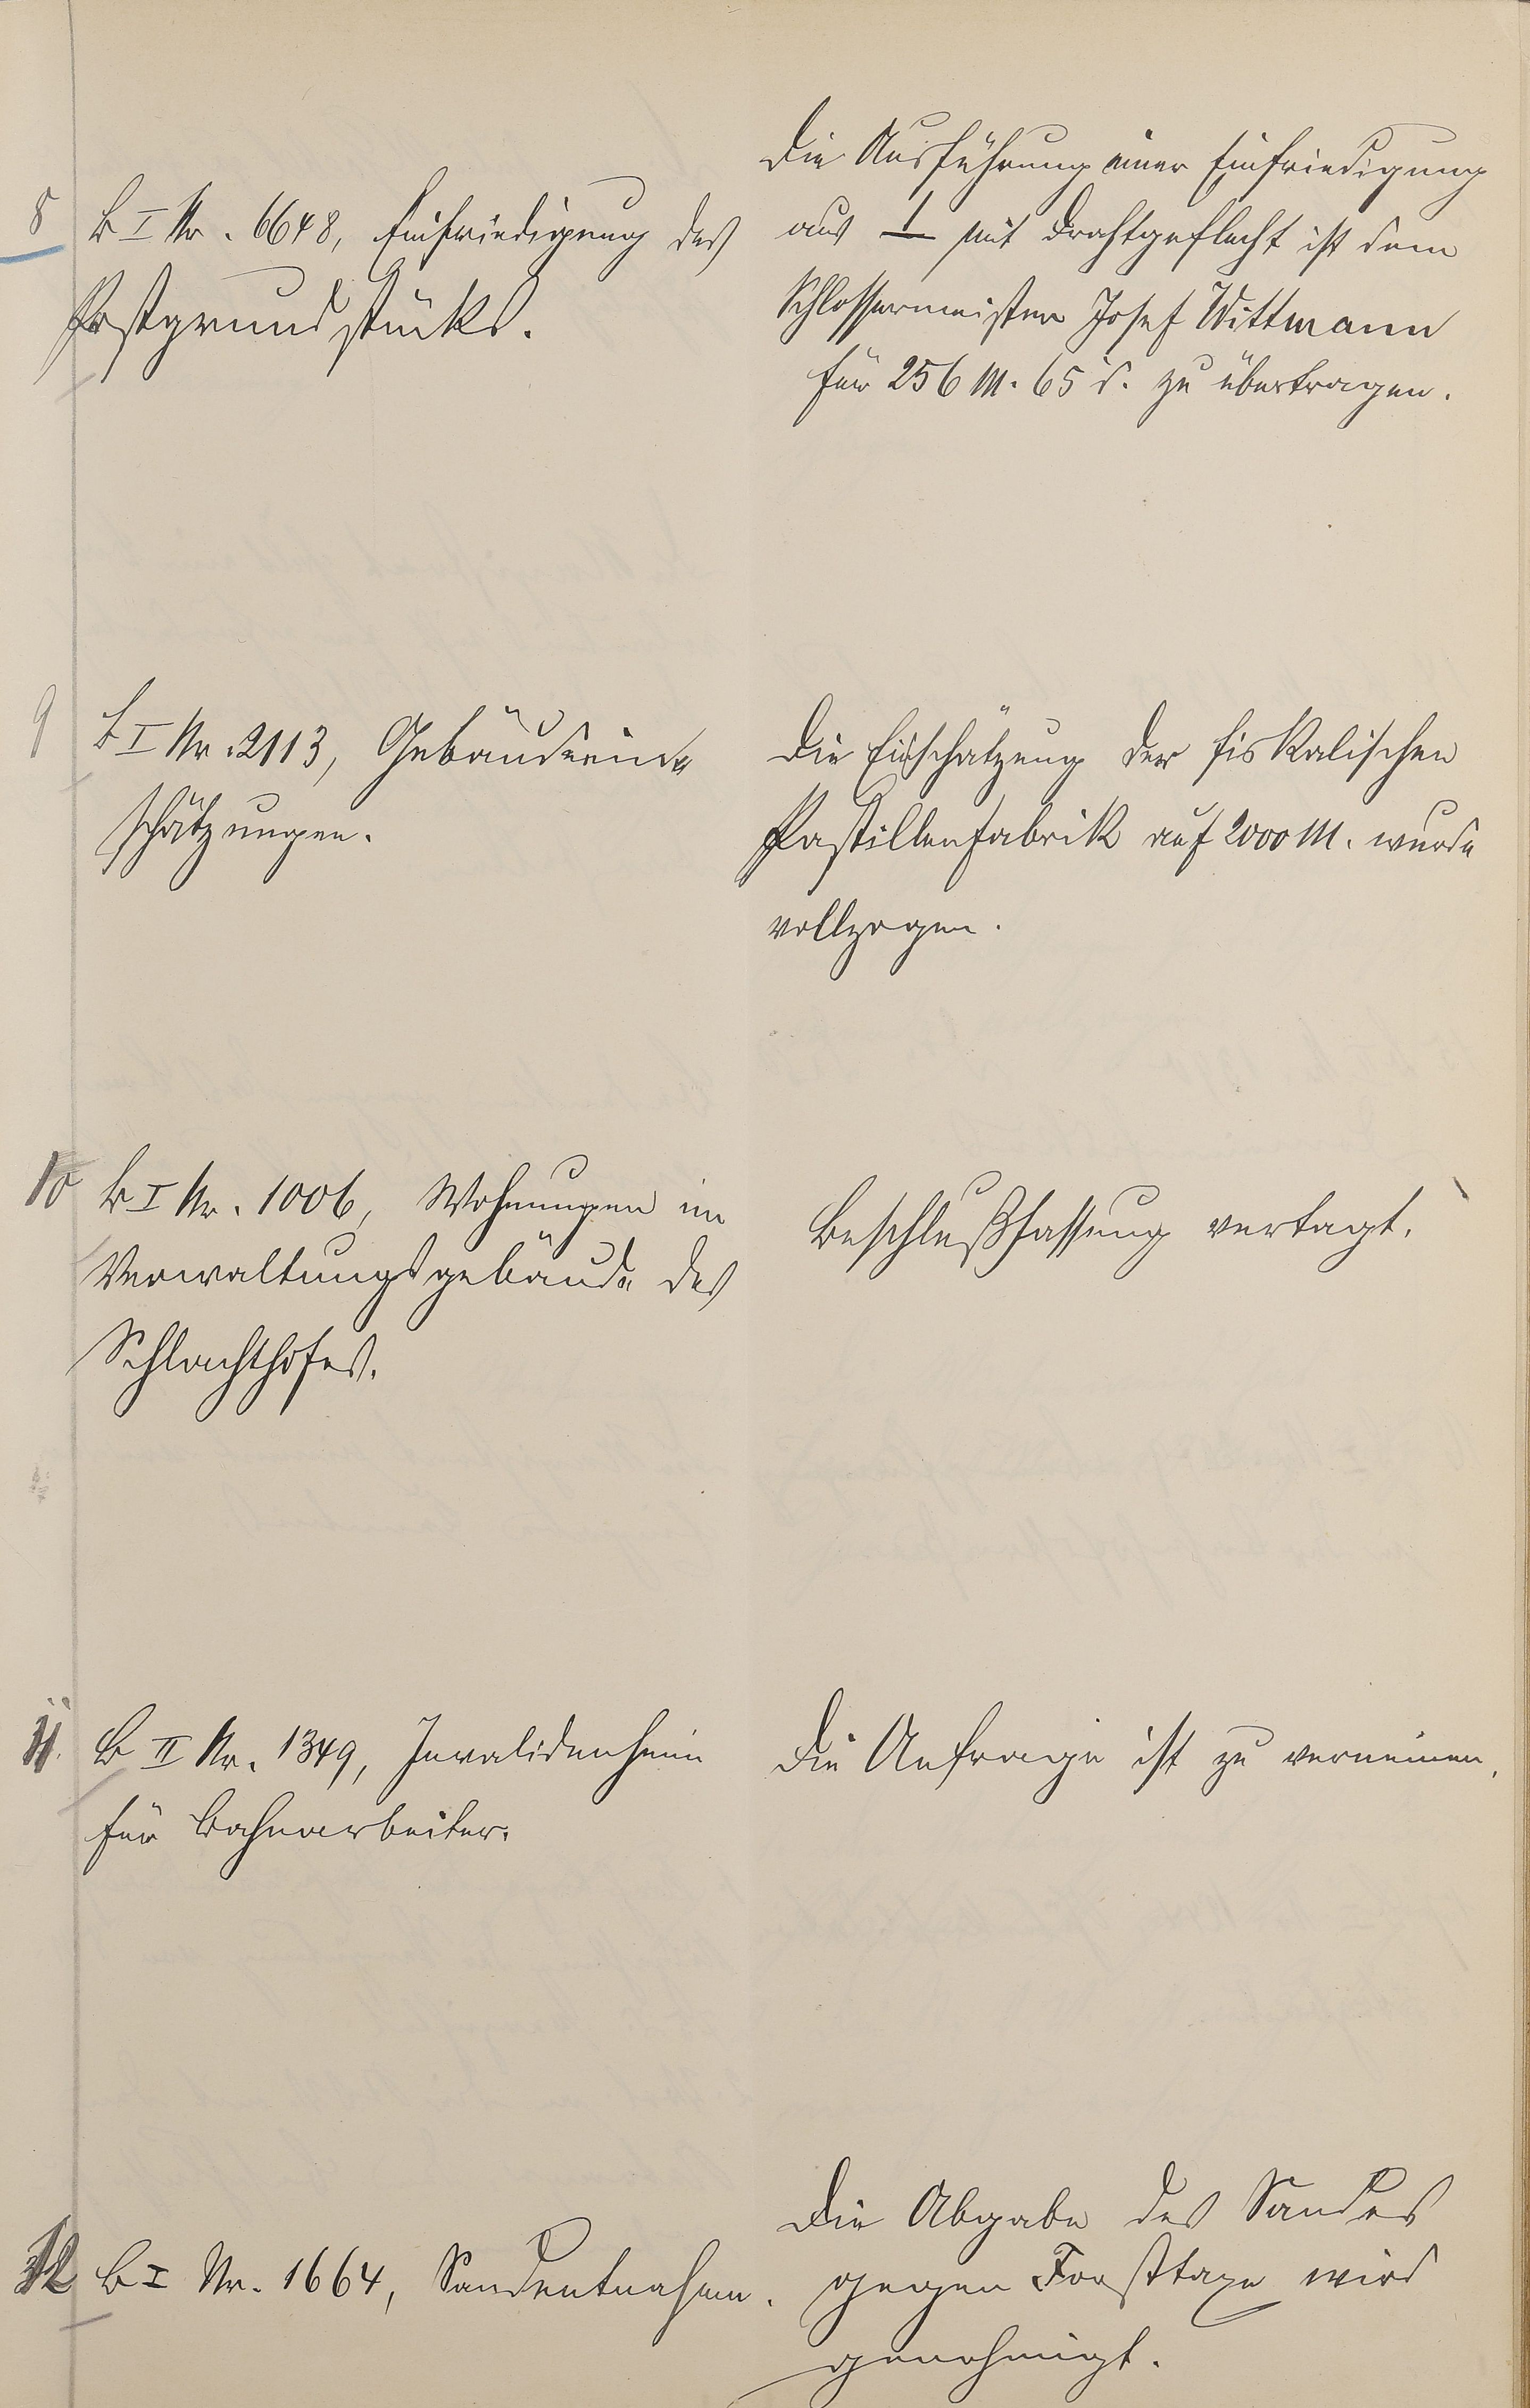 8 B I Nr. 6648, Einfriedigung des
Postgrundstücks.
Die Ausführung einer Einfriedigung
aus ⊥ mit Drahtgeflecht ist dem
Schlossermeister Josef Wittmann
für 256 M. 65 d. zu übertragen.
9 B I Nr. 2113, Gebäudeein=
schätzungen.
Die Einschätzung der fiskalischen
Pastillenfabrik auf 2000 M. wurde
vollzogen.
10 B I Nr. 1006, Wohnungen im
Verwaltungsgebäude des
Schlachthofes.
Beschlußfassung vertagt.
11. B II Nr. 1349, Invalidenheim
für Bahnarbeiter.
Die Anfrage ist zu verneinen.
12 B I Nr. 1664, Sandentnahme.
Die Abgabe des Sandes
gegen Forsttaxe wird
genehmigt.